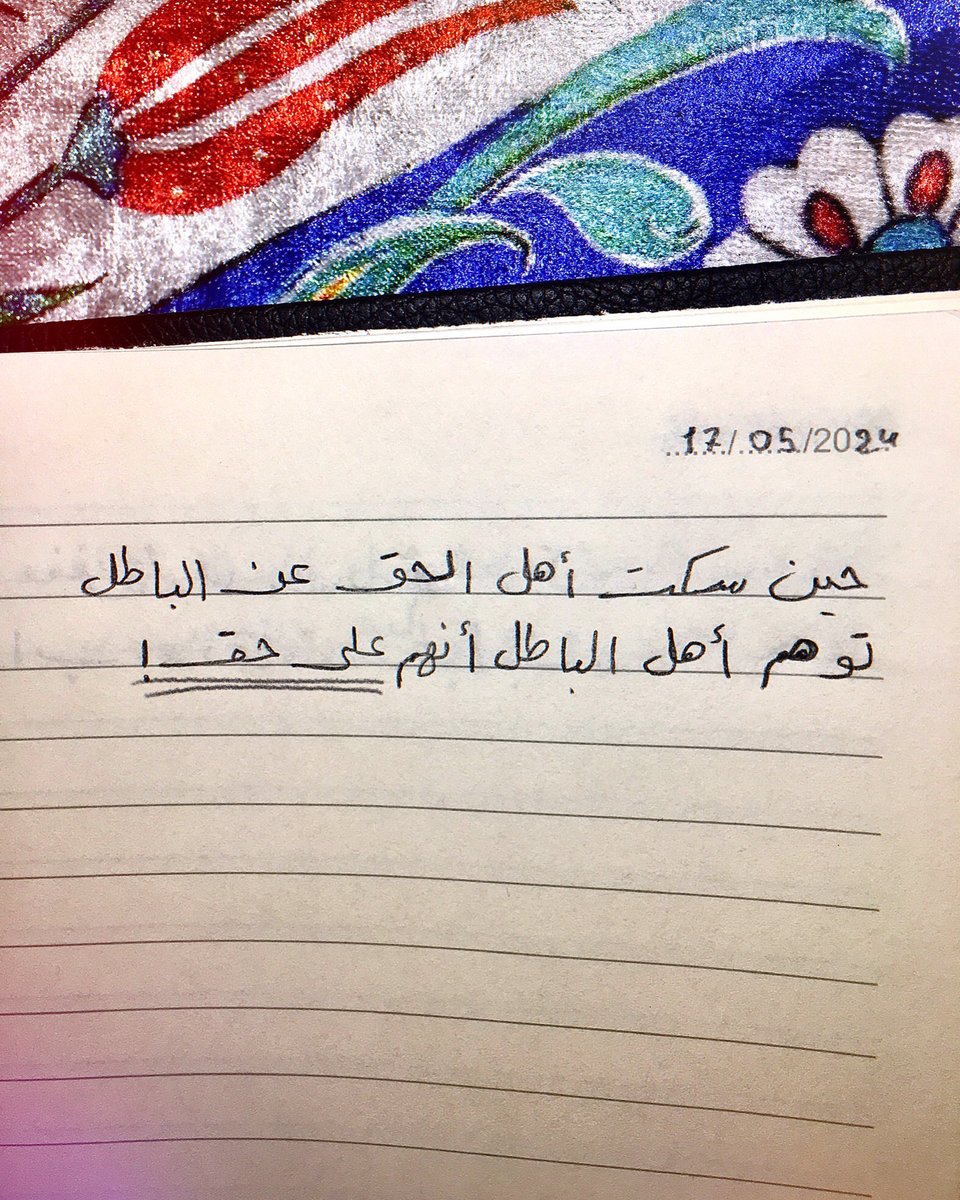 17/05/2024
حين سكت أهل الحق عن الباطل
توهم أهل الباطل أنهم على حق!